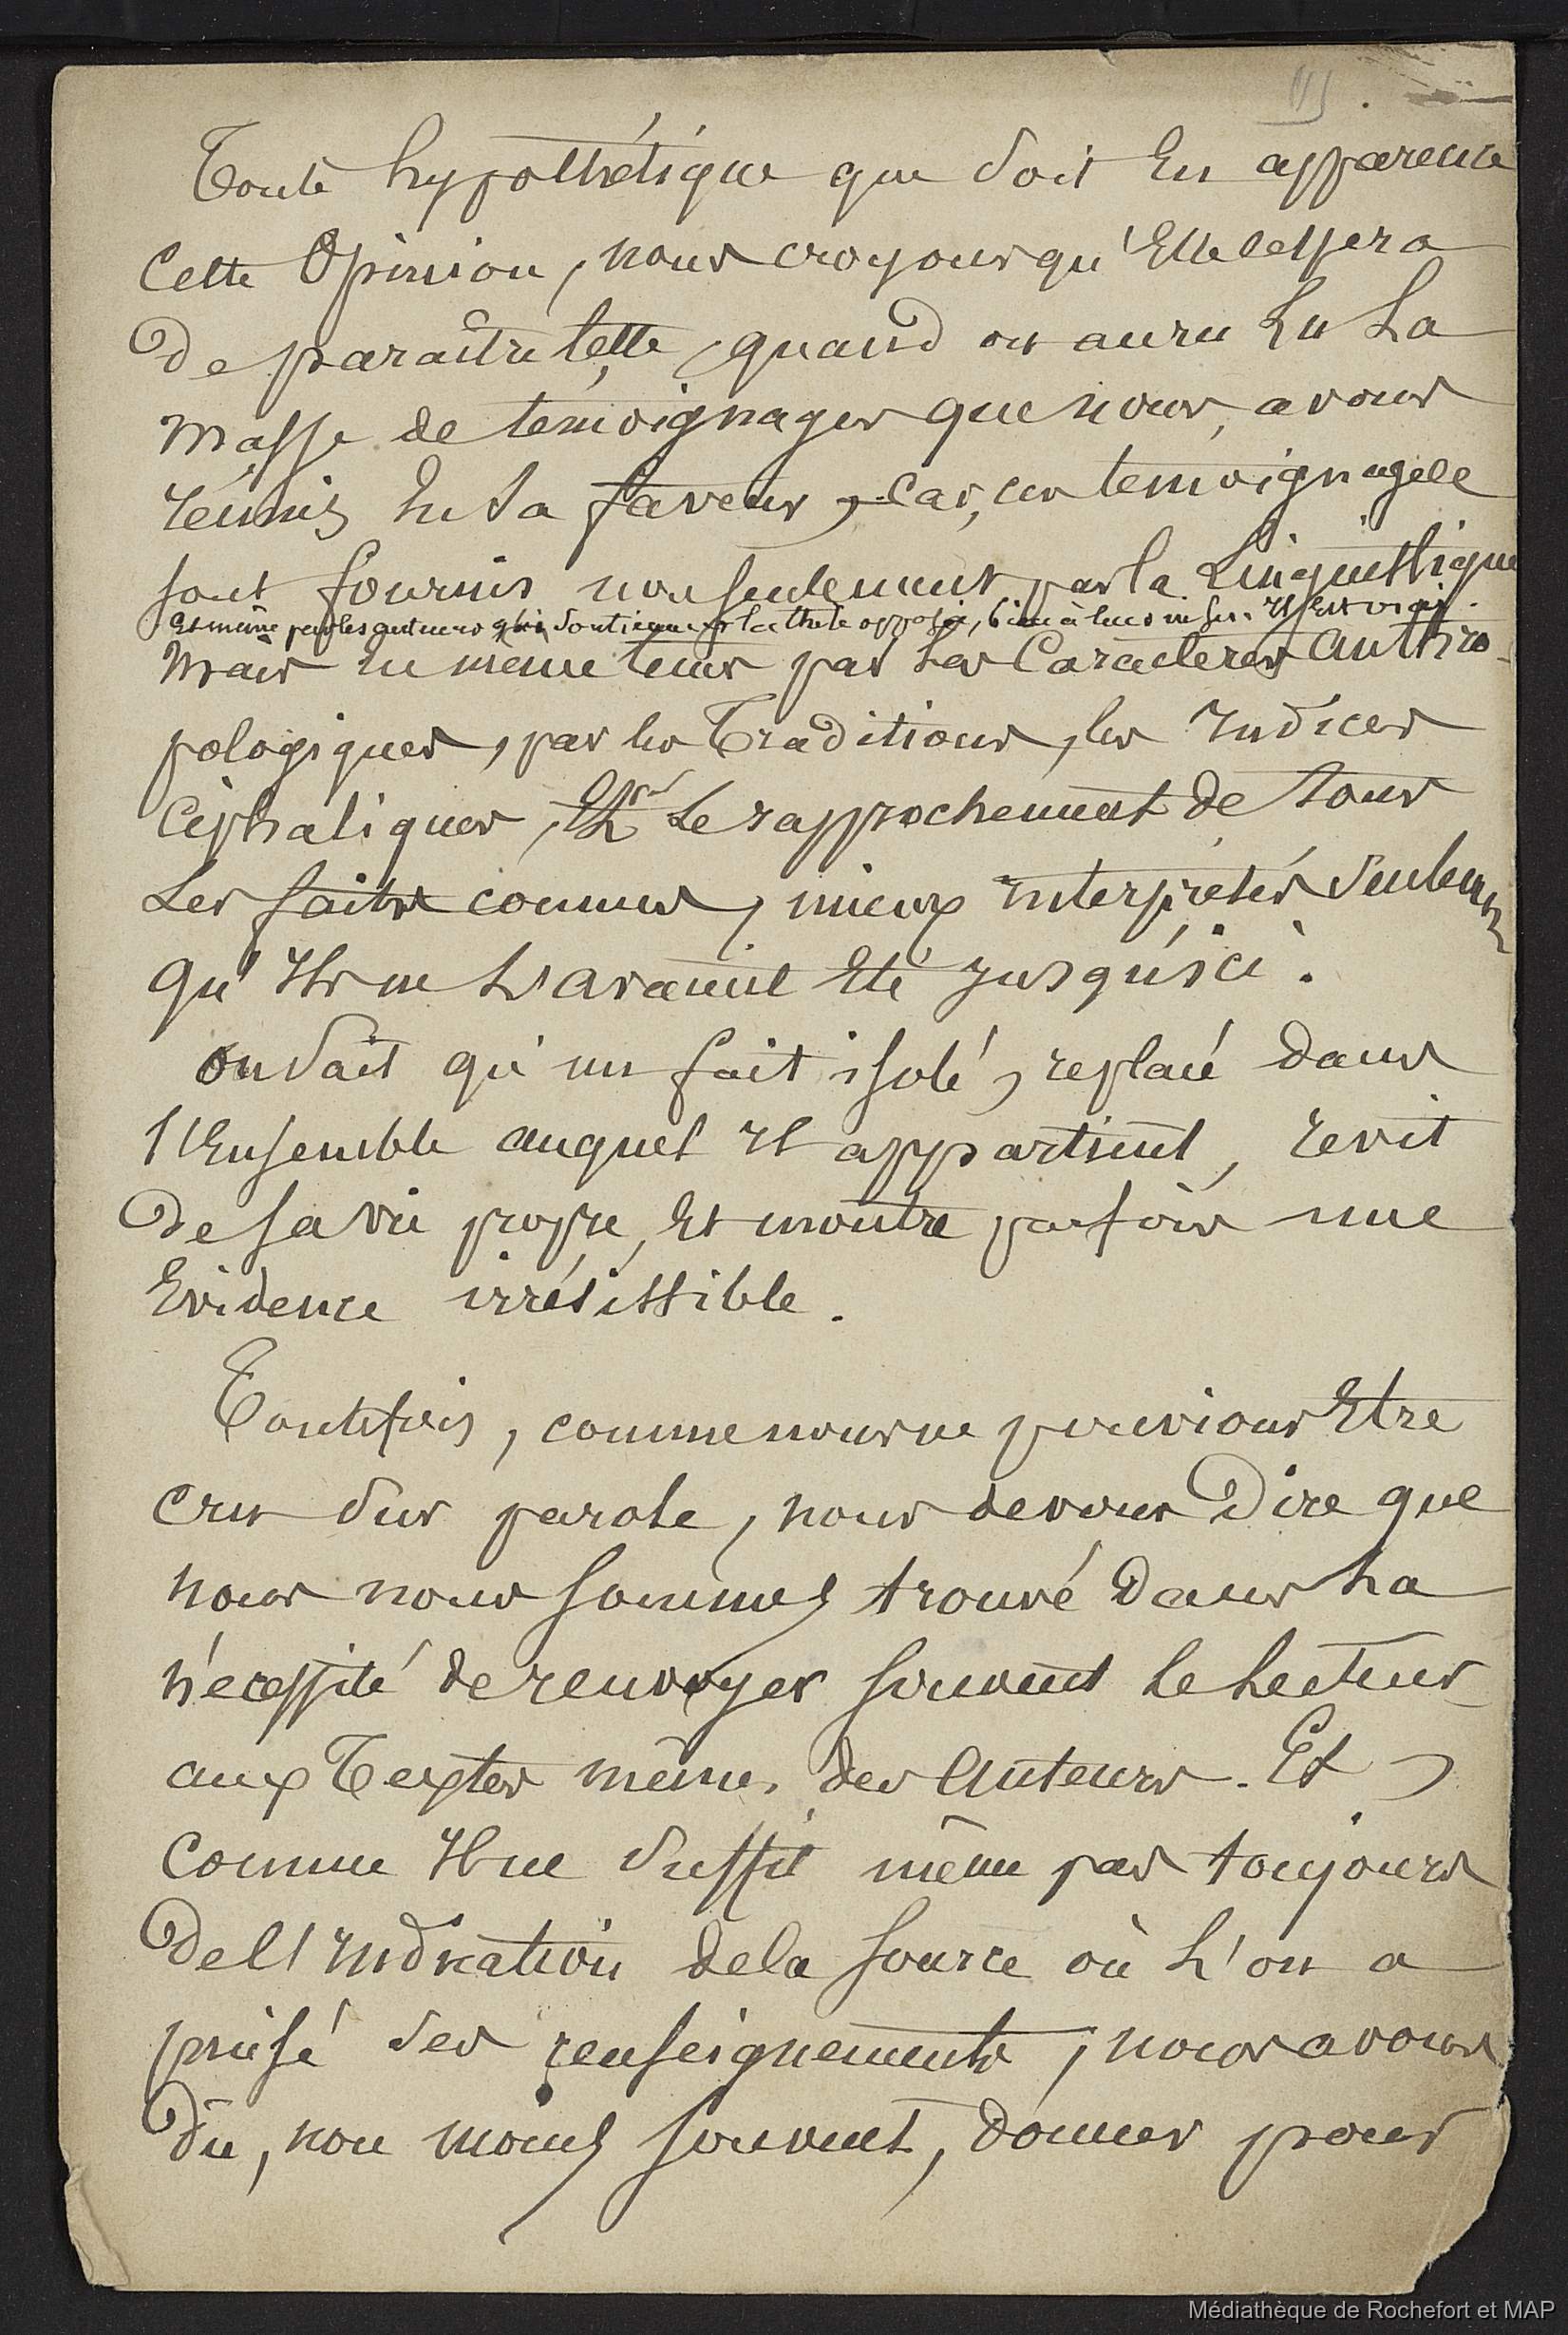 Toute hypothétique que soit en apparence
Cette Opinion, nous croyons qu'Elle cessera
De paraître telle, quand on aura Lu La
Masse de témoignages que nous avons
réunis En Sa faveur, car, ces temoignages
sont fournis non seulement par la Linguistique
Et même par les auteurs qui soutiennent la thèse opposée, bien à leur insu. Il Est vrai.
Mais En même tems par Les Caractères Anthro-
pologiques, par les Traditions, les Indices
Céphaliques, Le rapprochement de tous
Les faits connus, mieux interprétés seulement
qu'Ils ne L'avaient Eté Jusqu'ici.
on sait qu'un fait isolé, replacé dans
l'Ensemble auquel Il appartient, revit
De sa vie propre, Et montre parfois une
Evidence irrésistible.
Toutefois, comme nous ne pouvions Etre
cru sur parole, nous devons Dire que
nous nous sommes trouvé Dans La
nécessité de renvoyer souvent le Lecteur
aux Textes mêmes des Auteurs. Et,
Comme Il ne suffit même pas toujours
De l'Indication de la source où L'on a
puisé ses renseignements, nous avons
Dû, non moins souvent, donner pour
Médiathèque de Rochefort et MAP